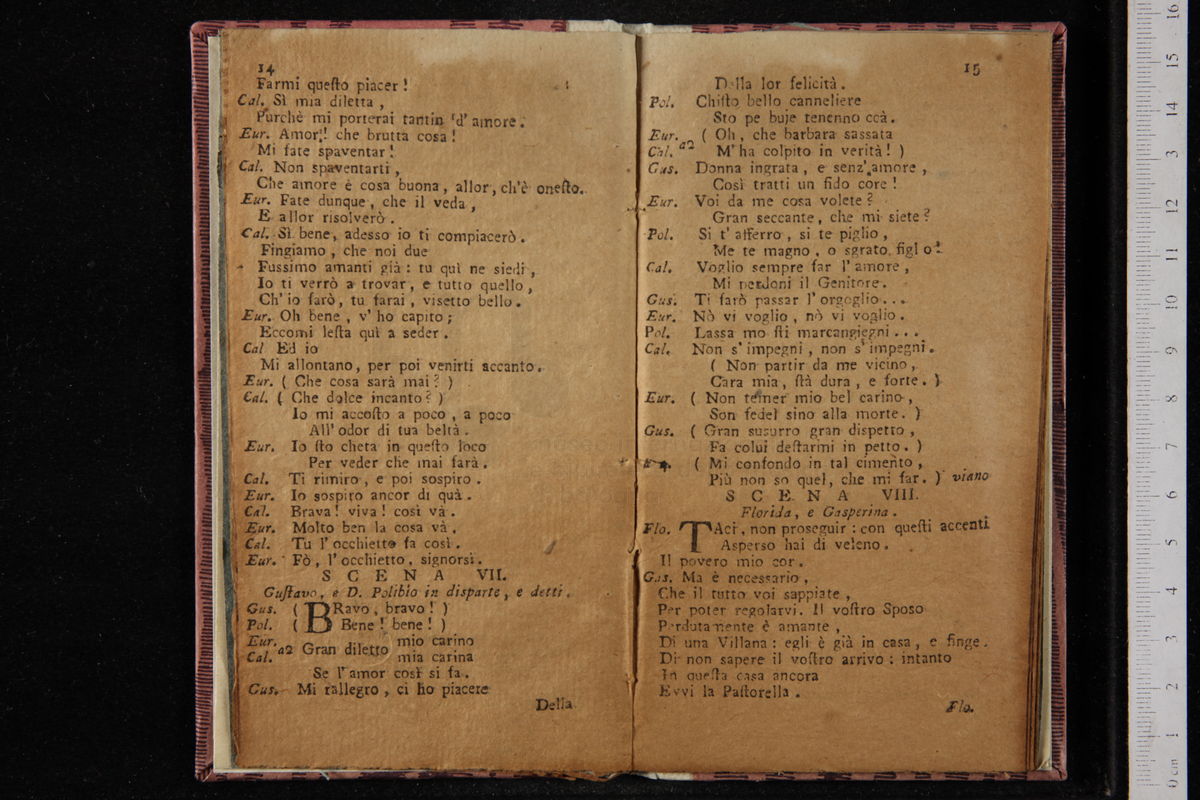 14
Farmi queſto piacer!
Cal. Sì mia diletta,
Purchè mi porterai tantin d'amore.
Eur. Amor! che brutta cosa!
Mi fate spaventar!
Cal. Non spaventarti,
Che amore è cosa buona, allor, ch'è oneſto.
Eur. Fate dunque, che il veda,
E allor risolverò.
Cal. Sì bene, adesso io ti compiacerò.
Fingiamo, che noi due
Fussimo amanti già: tu quì ne siedi,
Io ti verrò a trovar, e tutto quello,
Ch'io farò, tu farai, visetto bello.
Eur. Oh bene, v'ho capito;
Eccomi leſta quì a seder.
Cal Ed io
Mi allontano, per poi venirti accanto.
Eur. ( Che cosa sarà mai? )
Cal. ( Che dolce incanto? )
Io mi accoſto a poco, a poco
All'odor di tua beltà.
Eur. Io ſto cheta in queſto loco
Per veder che mai farà.
Cal. Ti rimiro, e poi sospiro.
Eur. Io sospiro ancor di quà.
Cal. Brava! viva! così và.
Eur. Molto ben la cosa và.
Cal. Tu l'occhietto fa così.
Eur. Fò, l'occhietto, signorsì.
SCENA VII.
Guſtavo, e D. Polibio in disparte, e detti.
Gus. ( BRavo, bravo! )
Pol. ( Bene! bene! )
Eur. mio carino
a2 Gran diletto
Cal. mia carina
Se l'amor così si fa.
Gus. Mi rallegro, ci ho piacere
Della
15
Della lor felicità.
Pol. Chiſto bello canneliere
Sto pe buje tenenno ccà.
Eur. ( Oh, che barbara sassata
a2
Cal. M'ha colpito in verità! )
Gus. Donna ingrata, e senz'amore,
Così tratti un fido core!
Eur. Voi da me cosa volete?
Gran seccante, che mi siete?
Pol. Si t'afferro, si te piglio,
Me te magno, o sgrato figlio!
Cal. Voglio sempre far l'amore,
Mi perdoni il Genitore.
Gus. Ti farò passar l'orgoglio...
Eur. Nò vi voglio, nò vi voglio.
Pol. Lassa mo ſti marcangiegni...
Cal. Non s'impegni, non s'impegni.
( Non partir da me vicino,
Cara mia, ſtà dura, e forte. )
Eur. ( Non temer mio bel carino,
Son fedel sino alla morte. )
Gus. ( Gran susurro gran dispetto,
Fa colui deſtarmi in petto. )
( Mi confondo in tal cimento,
Più non so quel, che mi far. ) viano
SCENA VIII.
Florida, e Gasperina.
Flo. TAci, non proseguir: con queſti accenti
Asperso hai di veleno.
Il povero mio cor.
Gas. Ma è necessario,
Che il tutto voi sappiate,
Per poter regolarvi. Il voſtro Sposo
Perdutamente è amante,
Di una Villana: egli è già in casa, e finge.
Di non sapere il voſtro arrivo: intanto
In queſta casa ancora
Evvi la Paſtorella.
Flo.